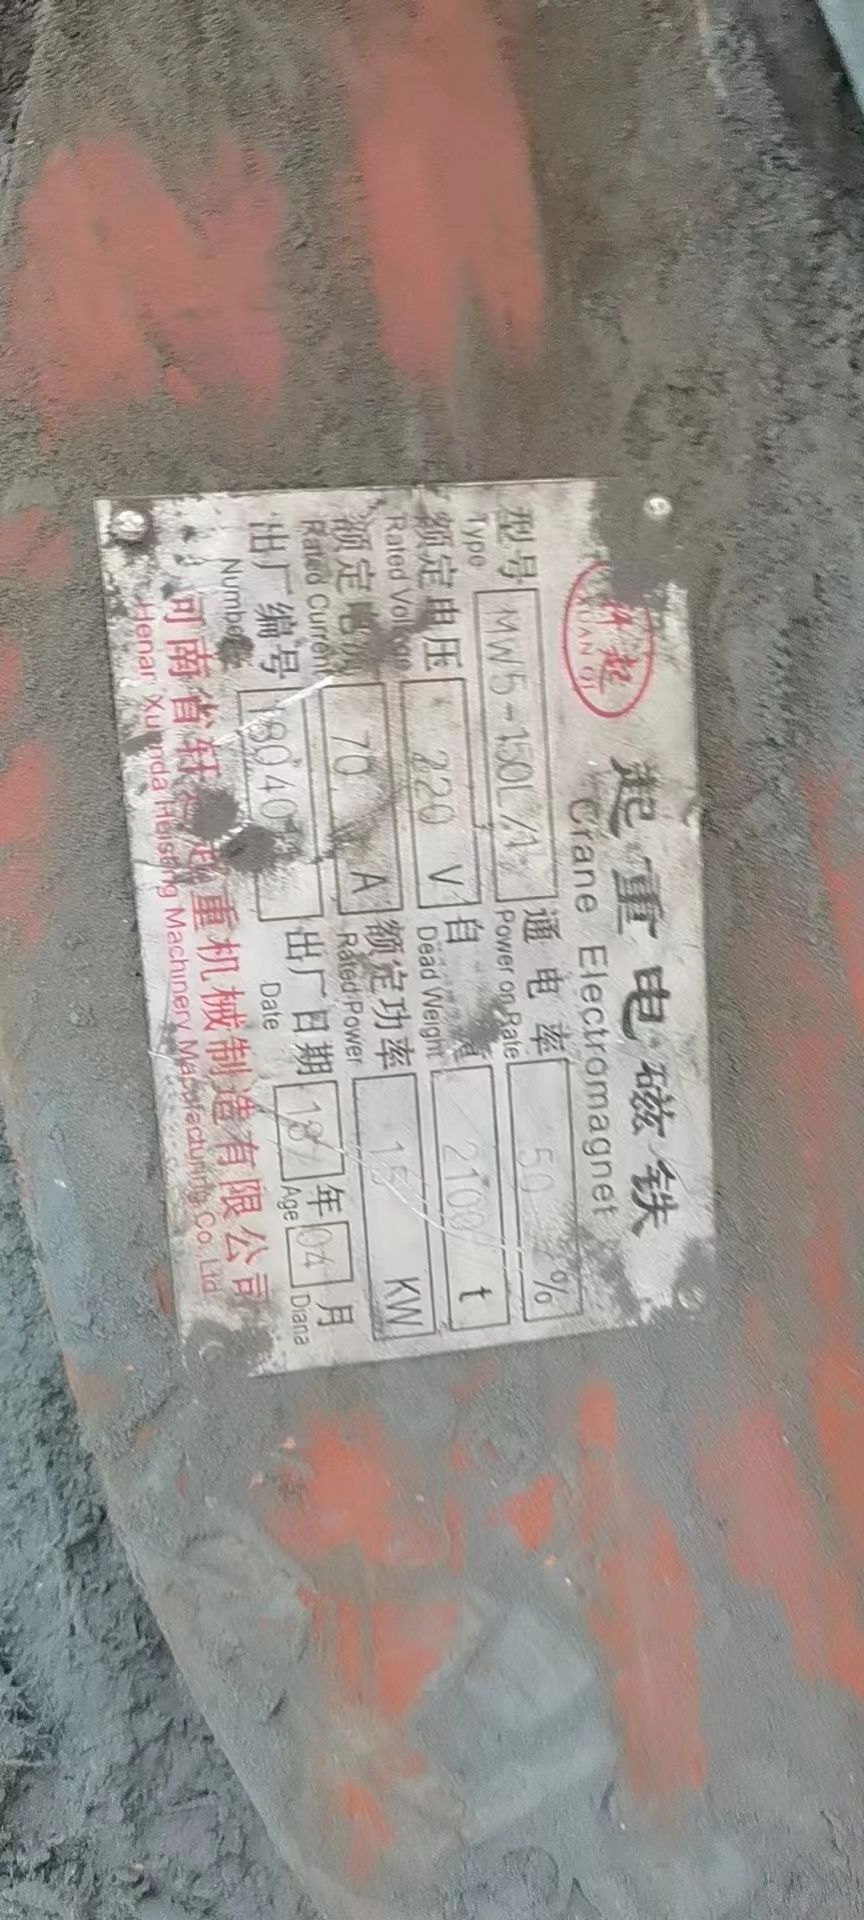 轩起
XUAN QI
起重电磁铁
Crane Electromagnet
型号 MW5-150L/1 通电率 50 %
Type Power on Rate
额定电压 220 V 自 重 2100 t
Rated Voltage Dead Weight
额定电流 70 A 额定功率 15 KW
Rated Current Rated Power
出厂编号 18040 出厂日期 18 年 04 月
Number Date Age Diana
河南省轩 起重机械制造有限公司
Henan Xuanda Hoisting Machinery Manufacturing Co. Ltd